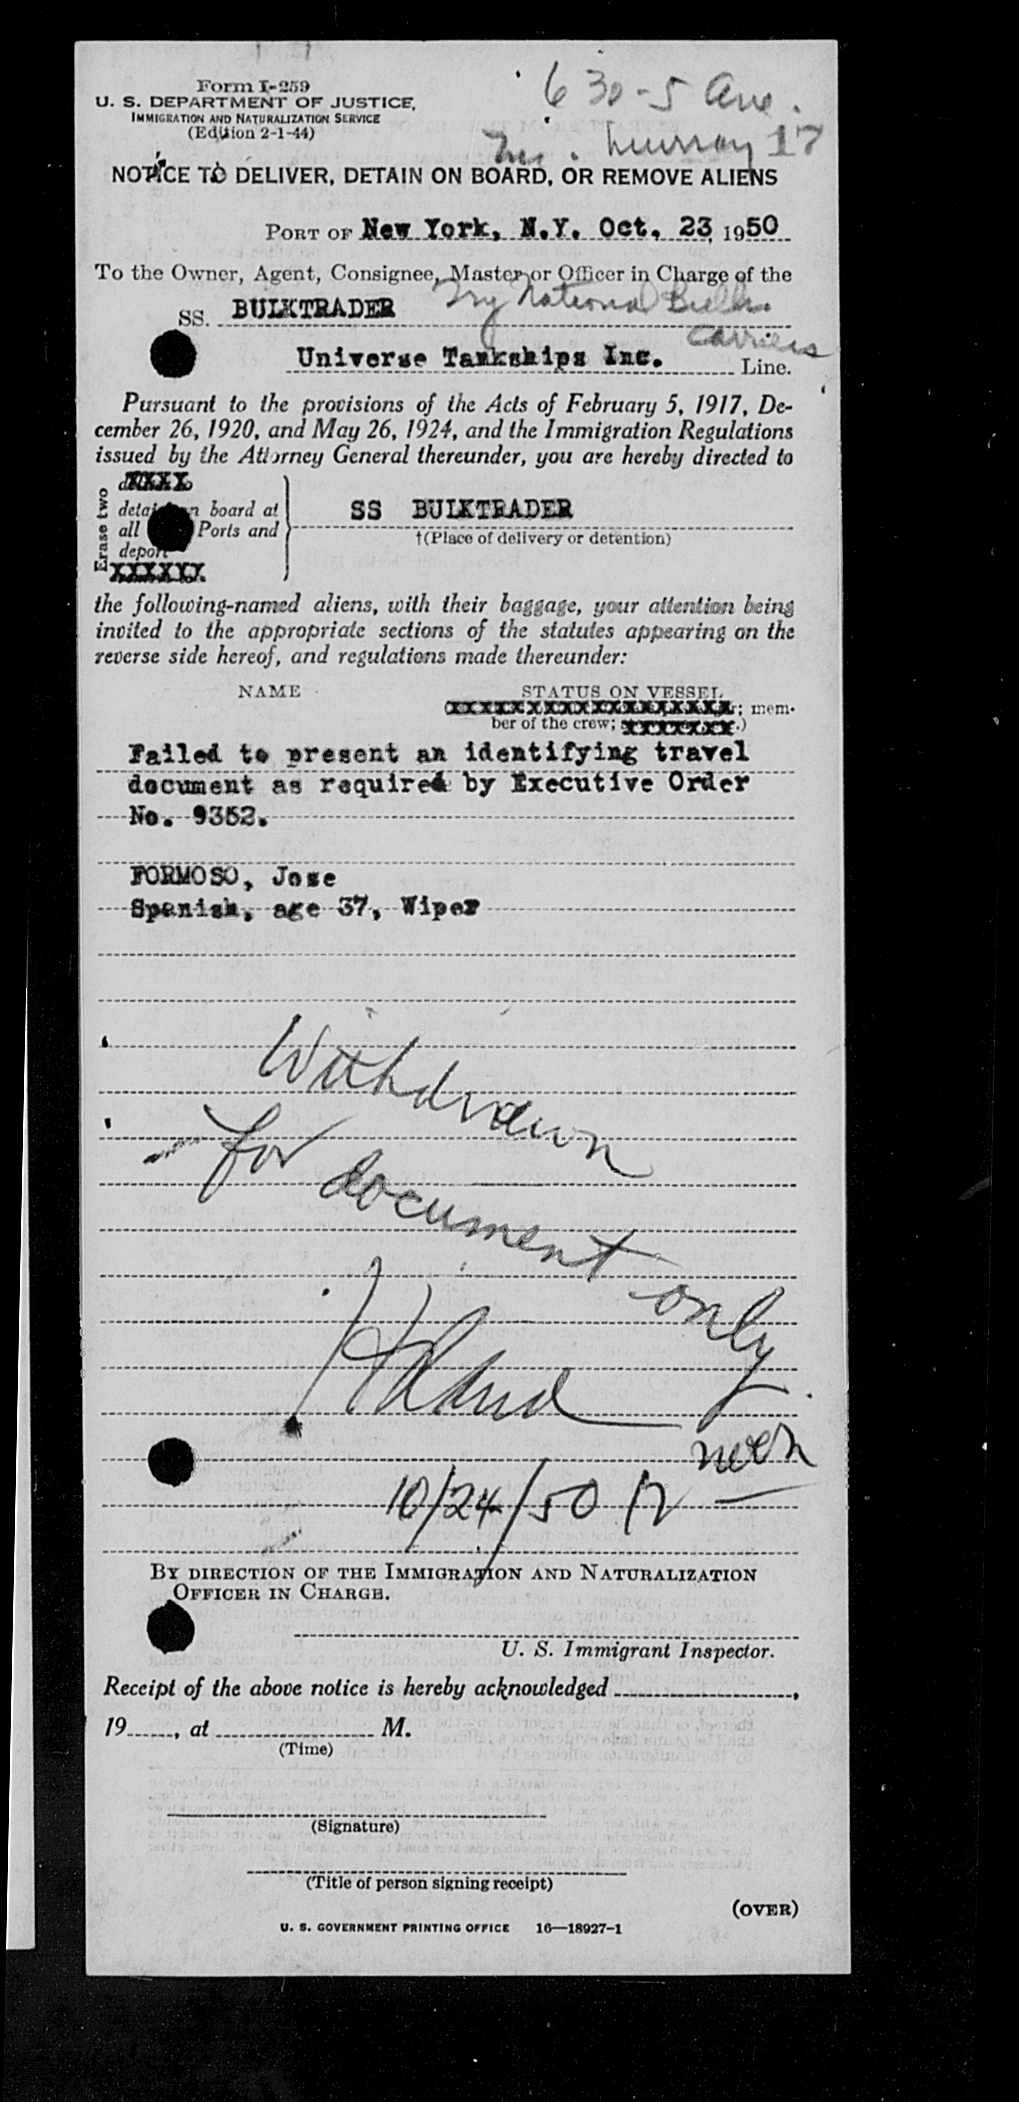 Form I-259
U. S. DEPARTMENT OF JUSTICE,
IMMIGRATION AND NATURALIZATION SERVICE
(Edition 2-1-44)
630-5 Ave.
Murray 17
NOTICE TO DELIVER, DETAIN ON BOARD, OR REMOVE ALIENS
PORT OF New York, N.Y. Oct. 23, 1950
To the Owner, Agent, Consignee, Master or Officer in Charge of the
Try National Bulk
SS. BULKTRADER
Carriers
Universe Tankships Inc. Line.
Pursuant to the provisions of the Acts of February 5, 1917, De-
cember 26, 1920, and May 26, 1924, and the Immigration Regulations
issued by the Attorney General thereunder, you are hereby directed to
Erase two
XXXX
detain on board at
all Ports and
deport
XXXXXX
SS BULKTRADER
†(Place of delivery or detention)
the following-named aliens, with their baggage, your attention being
invited to the appropriate sections of the statutes appearing on the
reverse side hereof, and regulations made thereunder:
NAME STATUS ON VESSEL
mem-
ber of the crew; XXXXXXX.)
Failed to present an identifying travel
document as required by Executive Order
No. 9352.
FORMOSO, Jose
Spanish, age 37, Wiper
Withdrawn
for document only
noon
10/24/50 12
BY DIRECTION OF THE IMMIGRATION AND NATURALIZATION
OFFICER IN CHARGE.
U. S. Immigrant Inspector.
Receipt of the above notice is hereby acknowledged ,
19 , at M.
(Time)
(Signature)
(Title of person signing receipt)
(OVER)
U. S. GOVERNMENT PRINTING OFFICE 16—18927-1